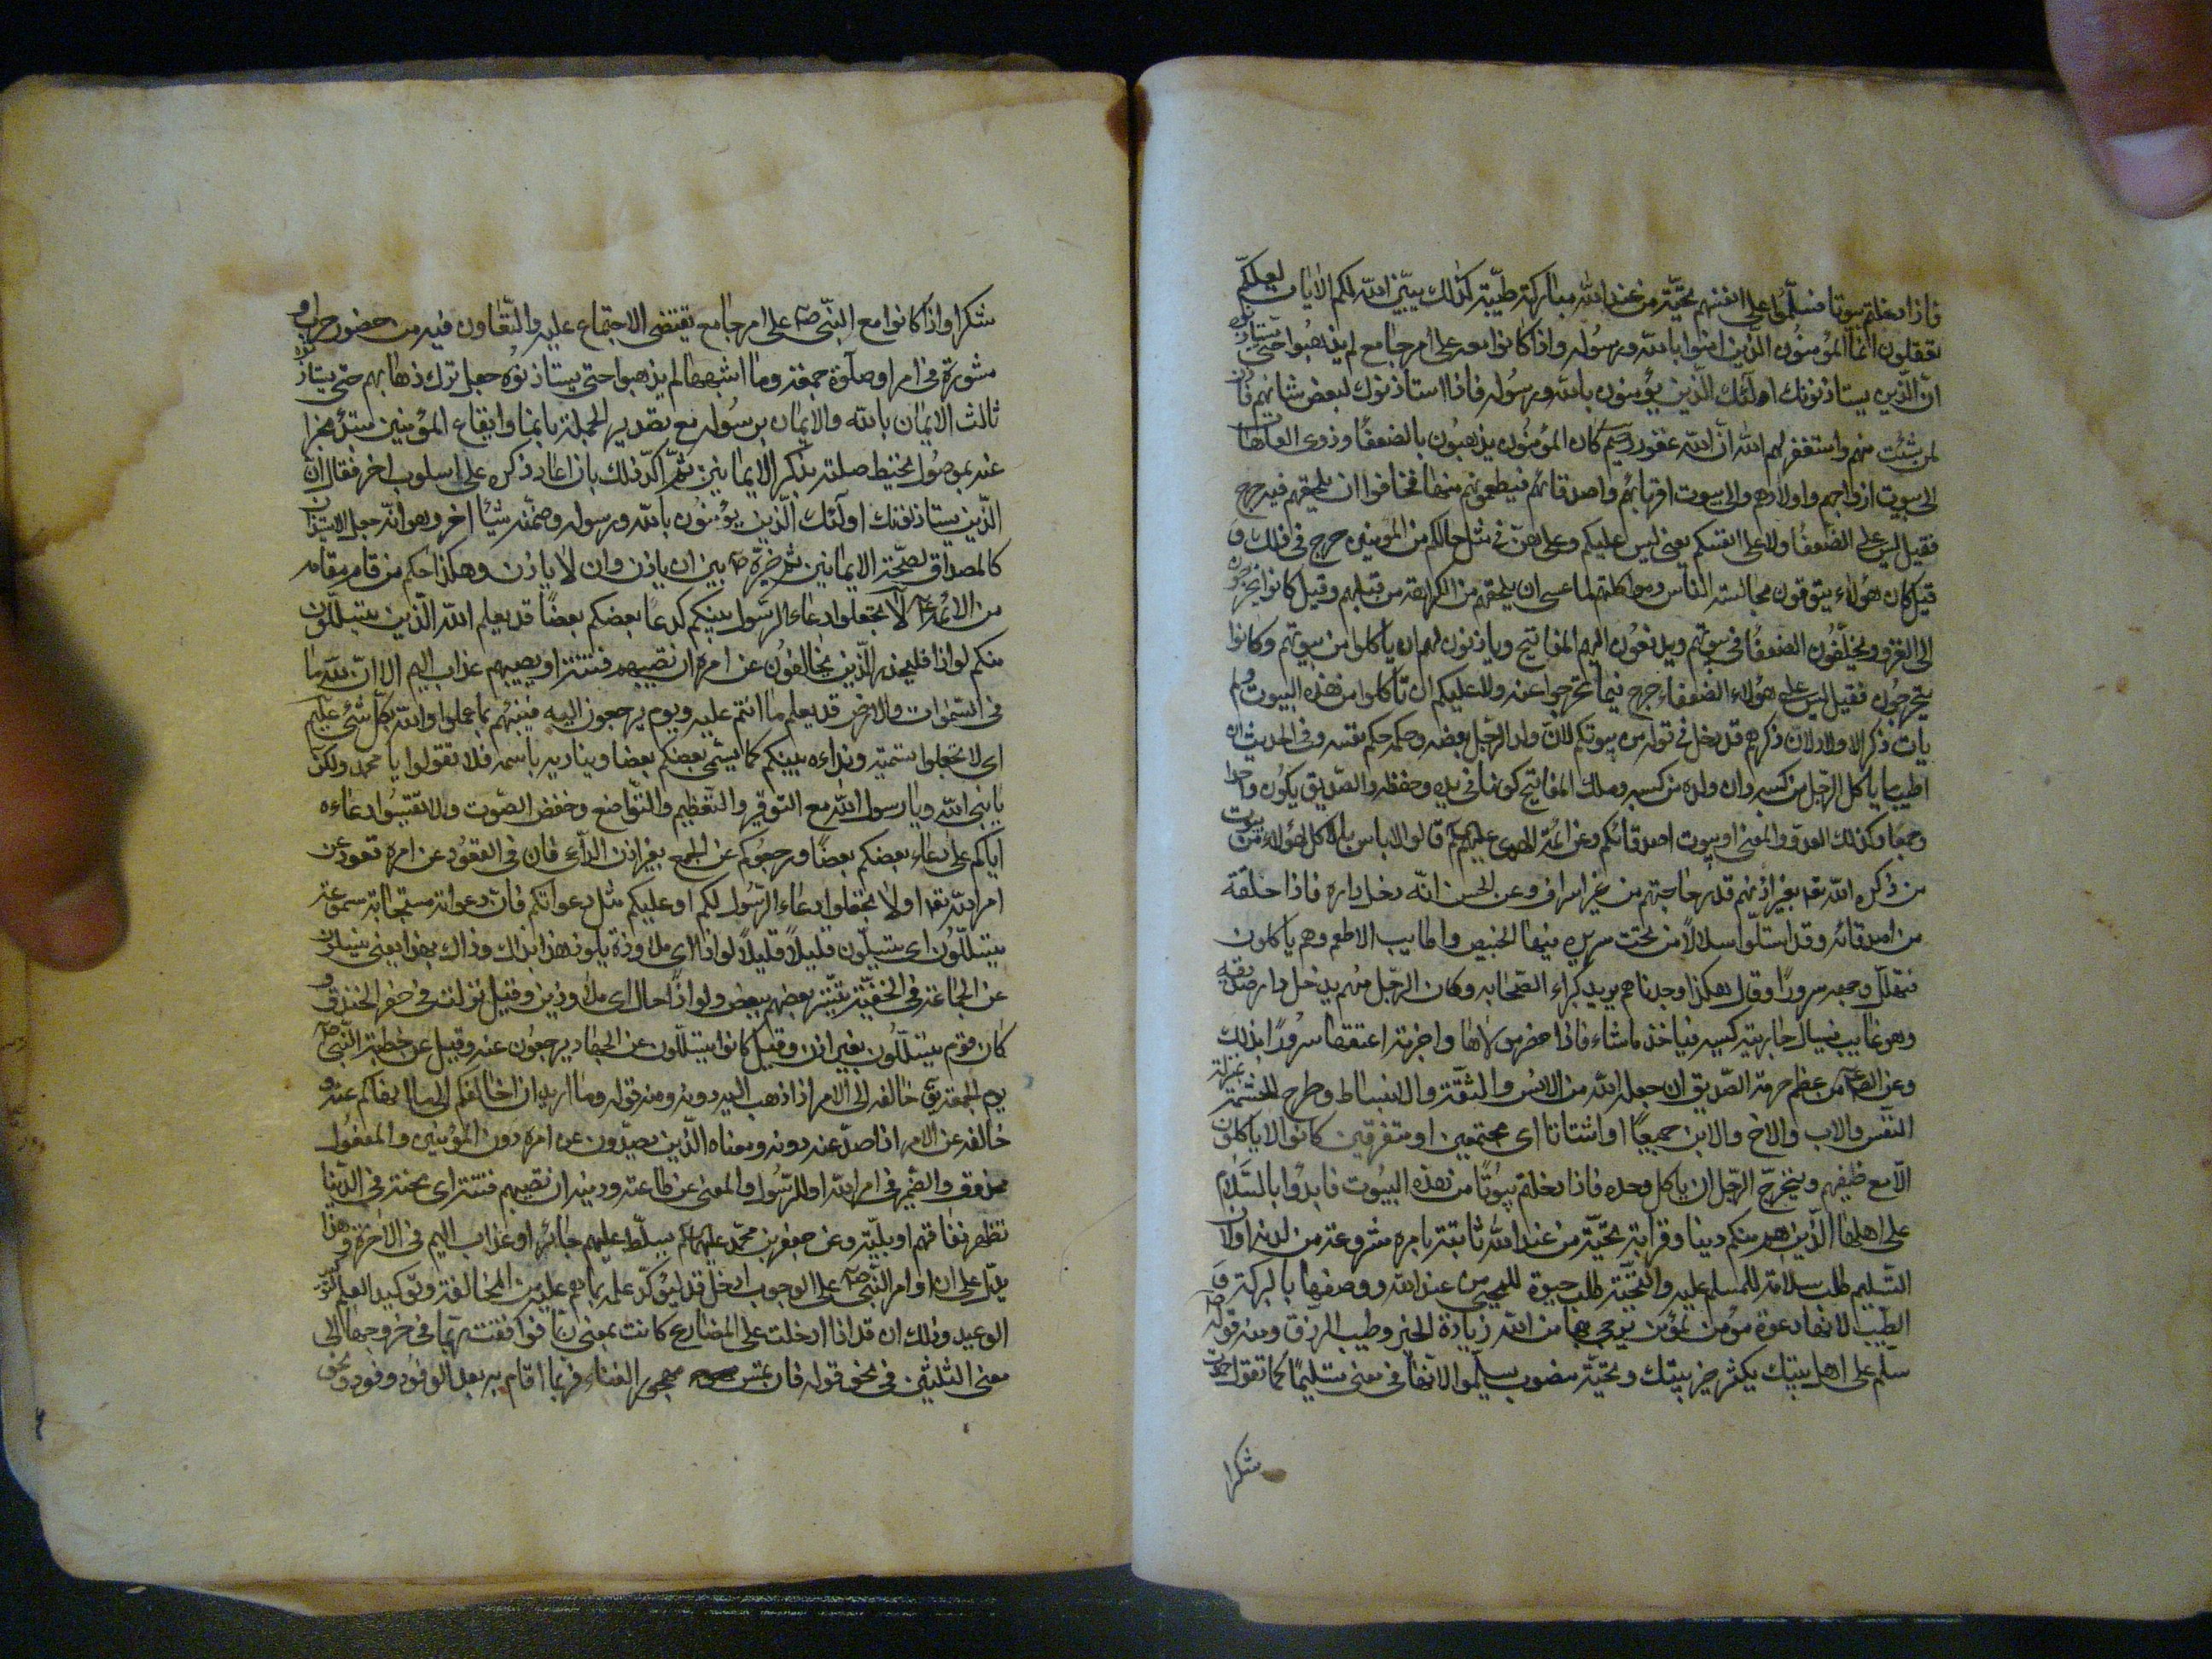 فاذا دخلتم بيوتا فسلموا على انفسكم تحيّة من عند الله مباركة طيّبة كذلك يبيّن الله لكم الايات لعلكم
تعقلون انما المؤمنون الذين امنوا بالله ورسوله واذا كانوا معه على امر جامع لم يذهبوا حتى يستاذنوه
ان الذين يستاذنونك اولئك الذين يؤمنون بالله ورسوله فاذا استاذنوك لبعض شانهم فاذن
لمن شئت منهم واستغفر لهم الله ان الله غفور رحيم كان المؤمنون يذهبون بالضعفا وذوى العاهات
الى بيوت ازواجهم واولادهم والى بيوت اقربائهم واصدقائهم فيطعمونهم منها فخافوا ان يلحقهم فيه حرج
فقيل ليس على الضعفا ولا على انفسكم يعنى ليس عليكم وعلى من فى مثل حالكم من المؤمنين حرج فى ذلك و
قيل كان هؤلاء يتوقون مجالسة الناس ومواكلتهم لما عسى ان يلحقهم من الكراهة من قبلهم وقيل كانوا يخرجون
الى الغزو ويخلّفون الضعفا فى بيوتهم ويدفعون اليهم المفاتيح وياذنون لهم ان ياكلوا من بيوتهم وكانوا
يتحرجون فقيل ليس على هؤلاء الضعفاء حرج فيما تحرجوا عنه ولا عليكم ان تاكلوا من هذه البيوت ولم
يات ذكر الاولاد لان ذكرهم قد دخل فى قوله من بيوتكم لانّ ولد الرجل بعضه وحكمه حكم نفسه وفى الحديث ان
اطيب ما ياكل الرجل من كسبه وان ولده من كسبه وملك المفاتيح كونها فى يده وحفظه والصديق يكون واحدا
وجمعا وكذلك العدو والمعنى او بيوت اصدقائكم وعن ائمة الهدى عليهم السلم قالوا لا باس بالاكل لهؤلاء من بيوت
من ذكره الله تعا بغير اذنهم قدر حاجتهم من غير اسراف وعن الحسن انّه دخل داره فاذا حلقة
من اصدقائه وقد استلّوا سلالا من تحت سريره فيها الخبيص واطايب الاطعمة وهم ياكلون
فتهلّل وجهه سرورا وقال هكذا وجدناهم يريد كبراء الصّحابه وكان الرجل منهم يدخل دار صديقه
وهو غايب فيسال جاريته كيسه فياخذ ما شاء فاذا حضر مولاها واخبرته اعتقها سرورا بذلك
وعن الص من عظم حرمة الصديق ان جعله الله من الانس والثقة والانبساط وطرح الحشمة بمنزلة
النفس والاب والاخ والابن جميعا او اشتاتا اى مجتمعين او متفرقين كانوا لا ياكلون
الا مع ضيفهم ويتحرج الرجل ان ياكل وحده فاذا دخلتم بيوتا من هذه البيوت فابدؤا بالسّلام
على اهلها الذين هم منكم دينا وقرابة تحيّة من عند الله ثابتة بامره مشروعة من لدنه او لانّ
التسليم طلب سلامة للمسلم عليه والتحيّة طلب حيوة للمحيى من عند الله ووصفها بالبركة و
الطيب لانها دعوة مؤمن لمؤمن يرجى بها من الله زيادة الخير وطيب الرزق ومنه قوله
سلم على اهل بيتك يكثر خير بيتك وتحيّة منصوب بسلّموا لانها فى معنى تسليما كما تقول حمدت
شكرا
شكرا واذا كانوا مع النبى ص على امر جامع يقتضى الاجتماع عليه والتعاون فيه من حضور حرب او
مشورة فى امر او صلوة جمعة وما اشبهها لم يذهبوا حتى يستاذنوه جعل ترك ذهابهم حتى يستاذنوه
ثالث الايمان بالله والايمان برسوله مع تصدير الجملة بانما وايقاع المؤمنين مبتدأ مخبرا
عنه بموصول تحيط صلته بذكر الايمانين ثم اكّد ذلك بان اعاد ذكره على اسلوب اخر فقال ان
الذين يستاذنونك اولئك الذين يؤمنون بالله ورسوله وضمّنه شيئا اخر وهو انّه جعل الاستيذان
كالمصداق لصحّة الايمانين ثم خيّره ص بين ان ياذن وان لا ياذن وهكذا حكم من قام مقامه
من الائمة ع لا تجعلوا دعاء الرسول بينكم كدعاء بعضكم بعضا قد يعلم الله الذين يتسلّلون
منكم لواذا فليحذر الذين يخالفون عن امره ان تصيبهم فتنة او يصيبهم عذاب اليم الا ان لله ما
فى السموات والارض قد يعلم ما انتم عليه ويوم يرجعون اليه فينبئهم بما عملوا والله بكل شئ عليم
اى لا تجعلوا تسميته ونداءه بينكم كما يسمّى بعضكم بعضا ويناديه باسمه فلا تقولوا يا محمد ولكن
يا نبى الله ويا رسول الله مع التوقير والتعظيم والتواضع وخفض الصّوت ولا تقيسوا دعاءه
اياكم على دعاء بعضكم بعضا ورجوعكم عن الجمع بغير اذن الداعى فان فى القعود عن امره قعود عن
امر الله تعا او لا تجعلوا دعاء الرسول لكم او عليكم مثل دعواتكم فانّ دعواته مستجابة مسموعة
يتسلّلون اى ينسلّون قليلا قليلا لواذا اى ملاوذة يلوذ هذا بذاك وذاك بهذا يعنى ينسلون
عن الجماعة فى الخفية يستتر بعضهم ببعض ولواذا حال اى ملاوذين وقيل نزلت فى حفر الخندق و
كان قوم يتسلّلون بغير اذن وقيل كانوا يتسلّلون عن الجهاد يرجعون عنه وقيل عن خطبة النبى ص
يوم الجمعة يق خالفه الى الامر اذا ذهب اليه دونه ومنه قوله وما اريد ان اخالفكم الى ما انهاكم عنه و
خالفه عن الامر اذا صدّ عنه دونه ومعناه الذين يصدّون عن امره دون المؤمنين والمفعول
محذوف والضّمير فى امره لله او للرسول والمعنى عن طاعته ودينه ان تصيبهم فتنة اى محنة فى الدنيا
تظهر نفاقهم او بليّة وعن جعفر بن محمد عليهما السلم يسلّط عليهم جائر او عذاب اليم فى الاخرة وهذا
يدلّ على ان اوامر النبى ص على الوجوب ادخل قد ليؤكّد علمه بما هم عليه من المخالفة وتوكيد العلم لتوكيد
الوعيد وذلك ان قد اذا دخلت على المضارع كانت بمعنى ربّما فوافقت ربّما فى خروجها الى
معنى التكثير فى نحو قوله فان تمس مهجور الفناء فربّما اقام به بعد الوفود وفود ونحو